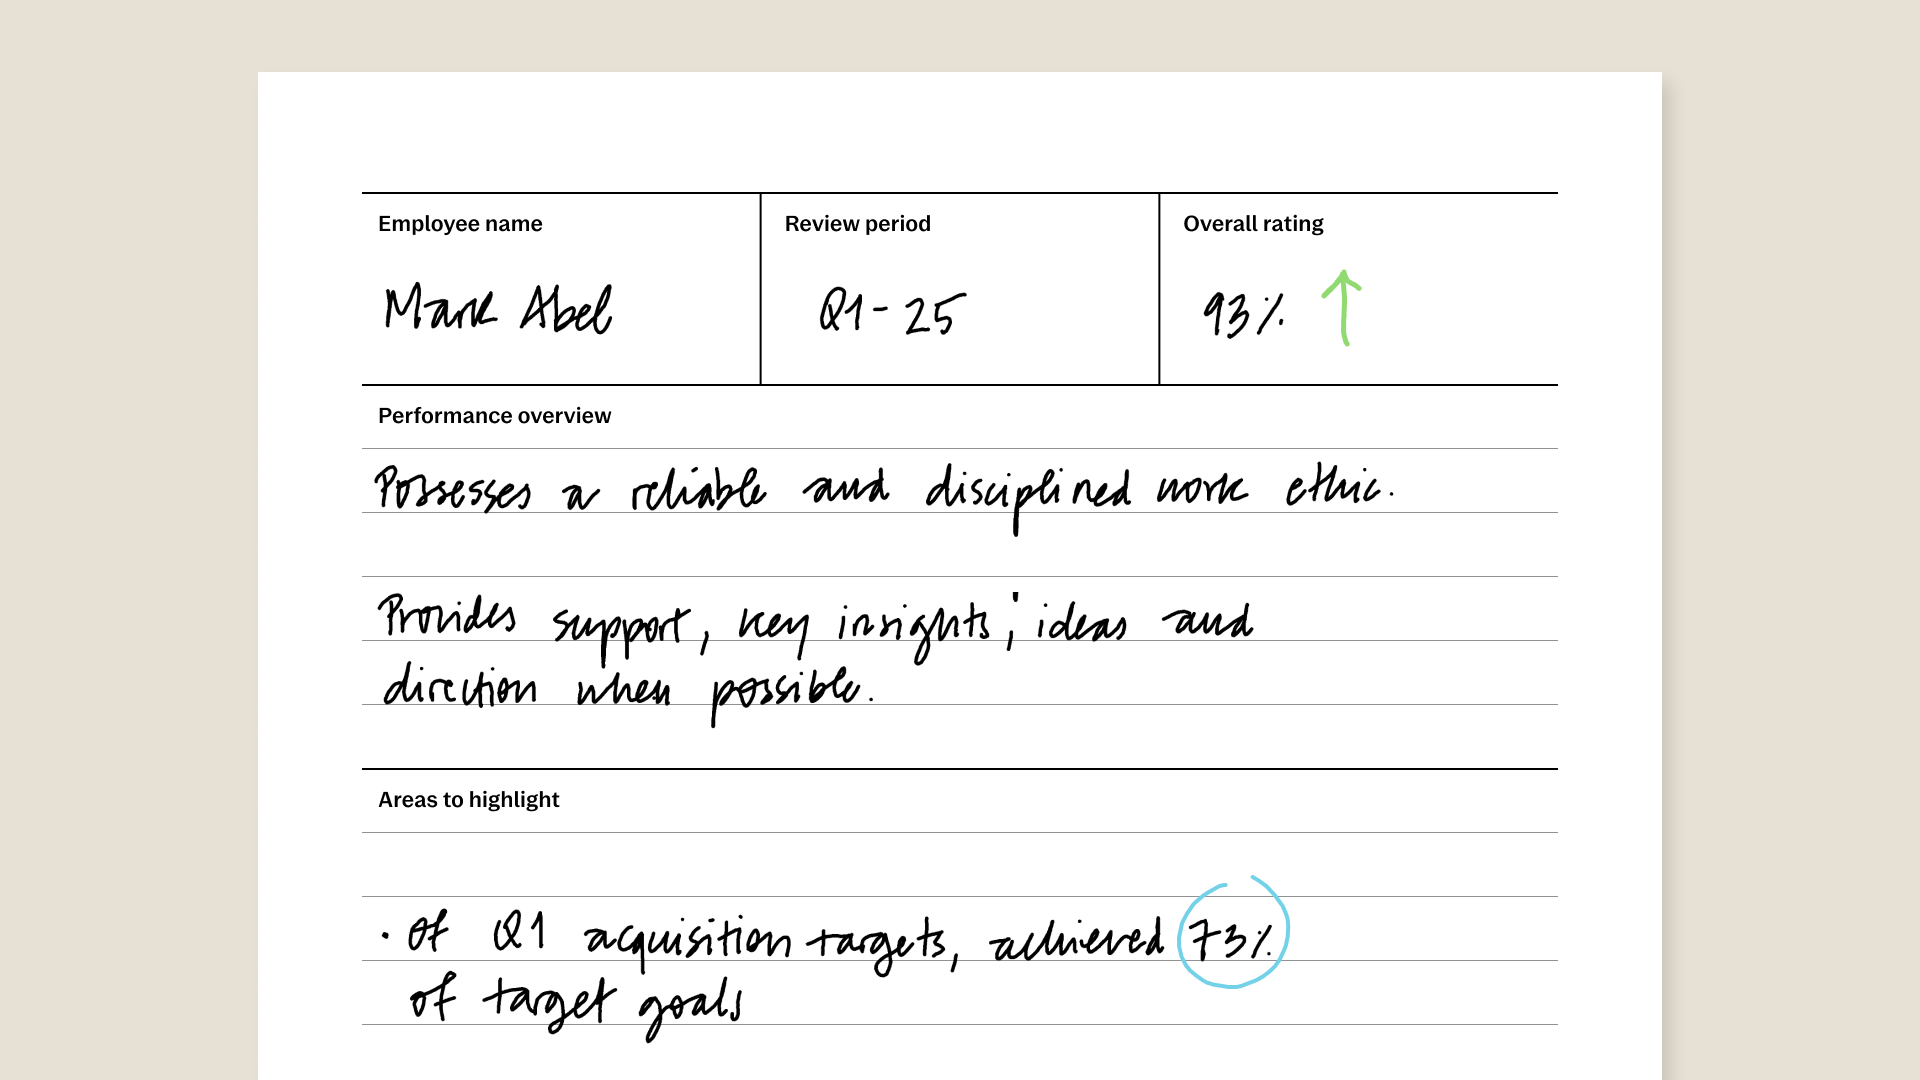 Employee name Review period Overall rating
Mark Abel Q1-25 93% ↑
Performance overview
Possesses a reliable and disciplined work ethic.
Provides support, key insights, ideas and
direction when possible.
Areas to highlight
· Of Q1 acquisition targets, achieved 73%
of target goals